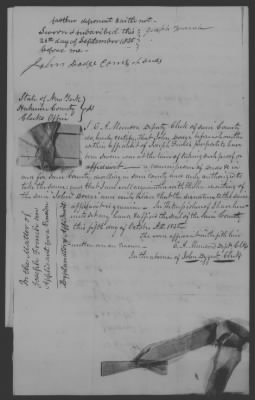 further deponent saith not.
Sworn & subscribed this } Joseph
20th day of September 1855 }
before me.
John Dodge Comr
State of New York }
Herkimer County } ss
Clerks Office }
I C. A. Munson Deputy Clerk of said County
do hereby certify that John Dodge before whom the
within affidavit of Joseph purports to have
been sworn was at the time of taking such proof or
affidavit a commissioner of deeds in
and for said county, dwelling in said county and duly authorized to
take the same, and that I am well acquainted with the hand writing of
the said John Dodge and verily believe that the signature to the same
affidavit is genuine. In testimony whereof I have here
unto set my hand & affixed the seal of the said County
this fifth day of October A.D. 1855.
The word affidavit in the fifth line
written on an erasure. C. A. Munson Depty Clk
In the absence of Clerk
In the matter of
Joseph
Applicant for a Pension
Explanatory Affidavit